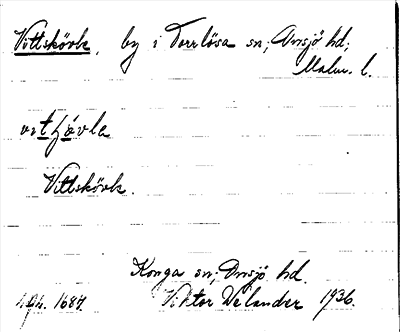 Vittskövle, by i Torrlösa sn, Onsjö hd,
Malm. l.
Vittskövle.
Konga sn, Onsjö hd.
Viktor Welander 1936.